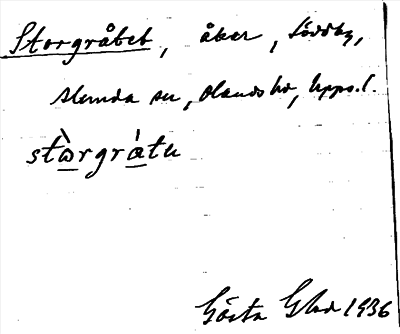 Storgråtet, åker, Söddby,
Alunda sn, Olands hd, Upps. l.
stòrgràtu
Gösta Glad 1936